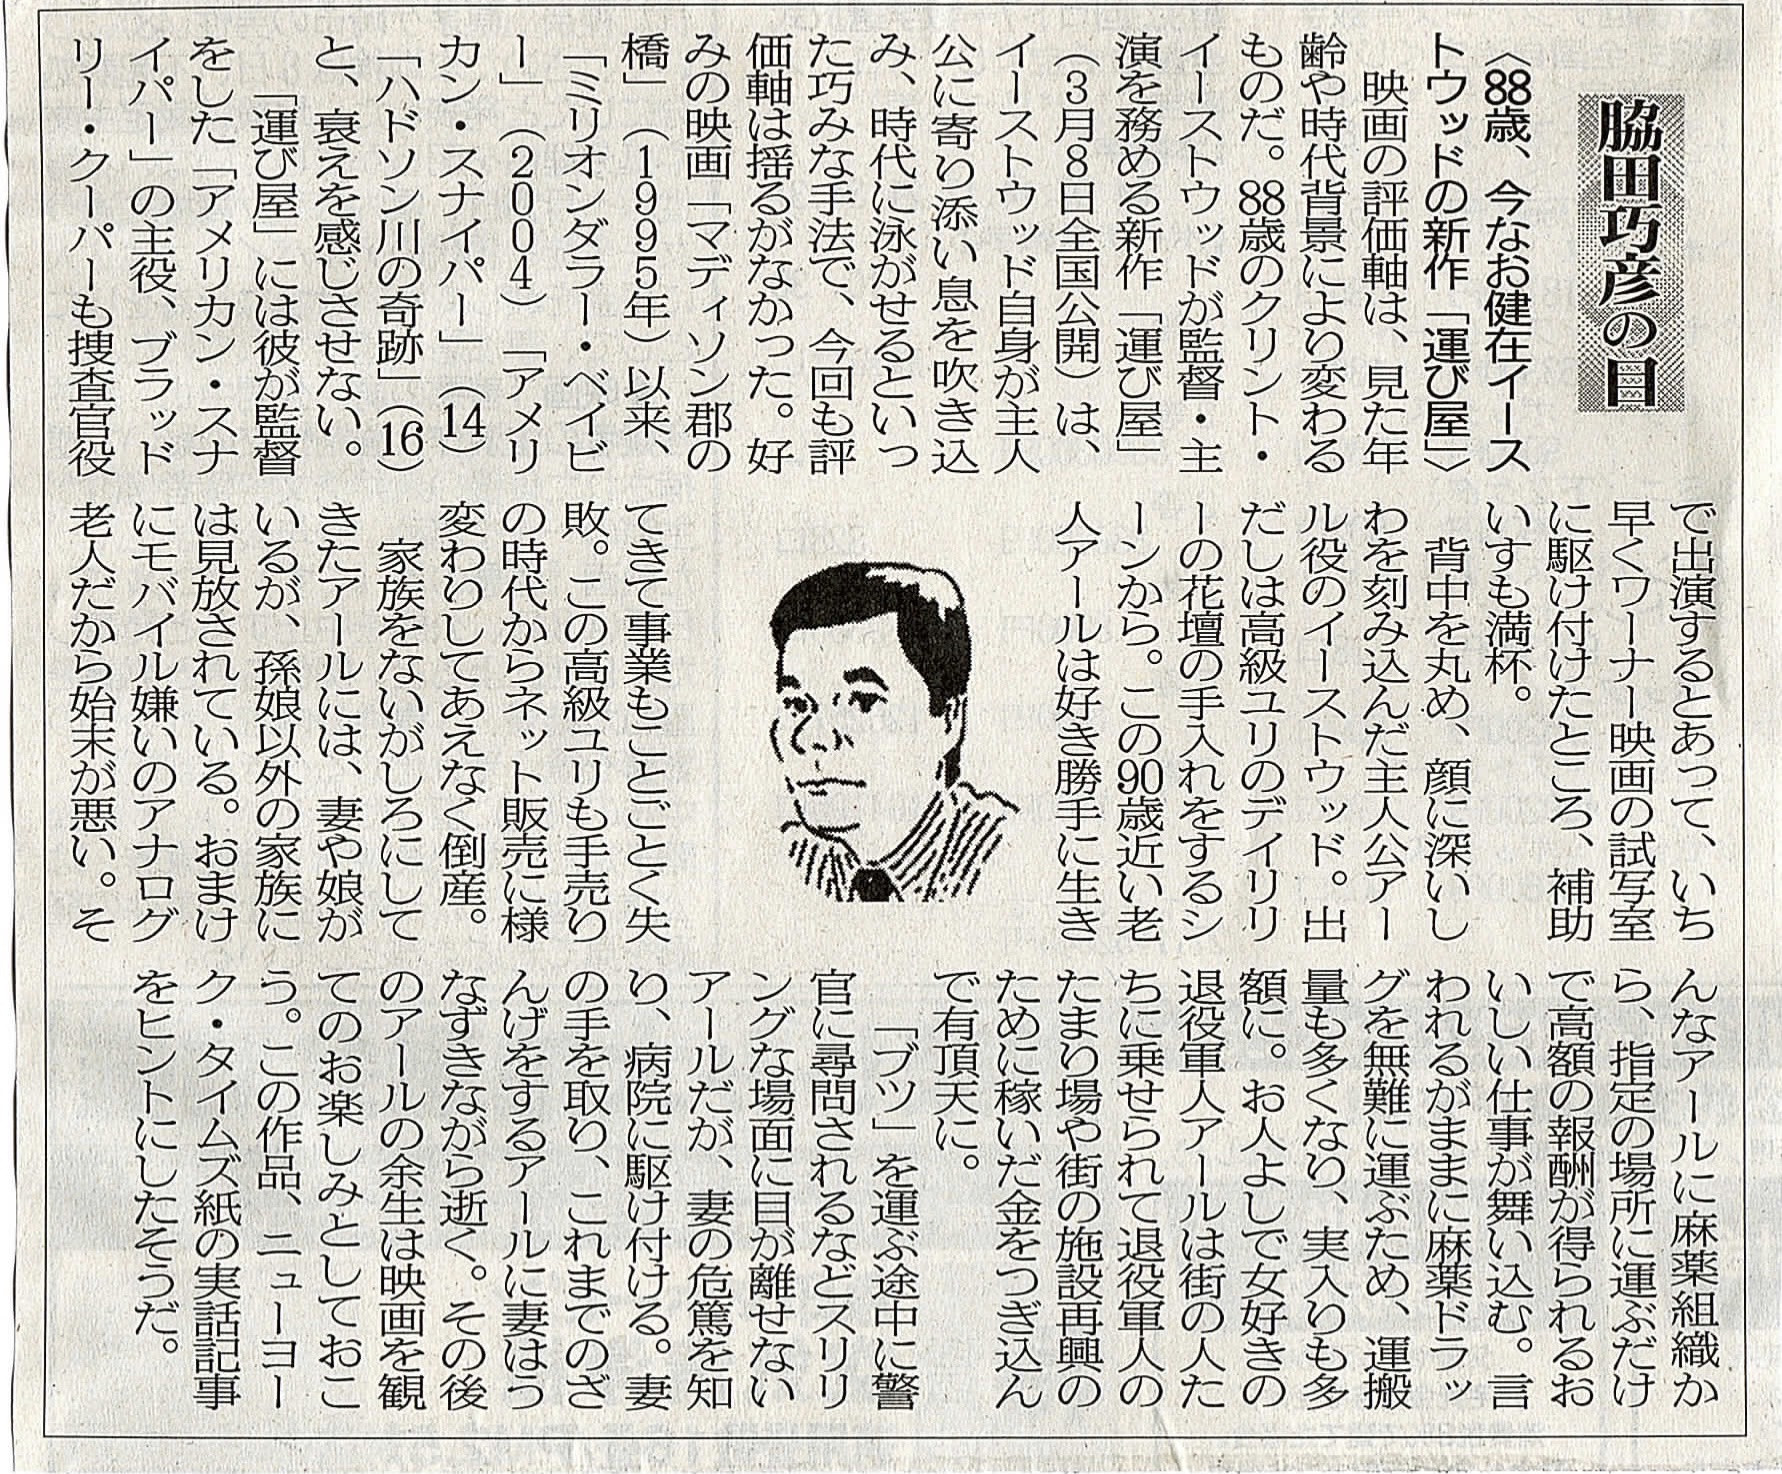 脇田巧彦の目
〈88歳、今なお健在イース
トウッドの新作「運び屋」〉
映画の評価軸は、見た年
齢や時代背景により変わる
ものだ。88歳のクリント・
イーストウッドが監督・主
演を務める新作「運び屋」
（3月8日全国公開）は、
イーストウッド自身が主人
公に寄り添い息を吹き込
み、時代に泳がせるといっ
た巧みな手法で、今回も評
価軸は揺るがなかった。好
みの映画「マディソン郡の
橋」（1995年）以来、
「ミリオンダラー・ベイビ
ー」（2004）「アメリ
カン・スナイパー」（14）
「ハドソン川の奇跡」（16）
と、衰えを感じさせない。
「運び屋」には彼が監督
をした「アメリカン・スナ
イパー」の主役、ブラッド
リー・クーパーも捜査官役
で出演するとあって、いち
早くワーナー映画の試写室
に駆け付けたところ、補助
いすも満杯。
背中を丸め、顔に深いし
わを刻み込んだ主人公アー
ル役のイーストウッド。出
だしは高級ユリのデイリリ
ーの花壇の手入れをするシ
ーンから。この90歳近い老
人アールは好き勝手に生き
てきて事業もことごとく失
敗。この高級ユリも手売り
の時代からネット販売に様
変わりしてあえなく倒産。
家族をないがしろにして
きたアールには、妻や娘が
いるが、孫娘以外の家族に
は見放されている。おまけ
にモバイル嫌いのアナログ
老人だから始末が悪い。そ
んなアールに麻薬組織か
ら、指定の場所に運ぶだけ
で高額の報酬が得られるお
いしい仕事が舞い込む。言
われるがままに麻薬ドラッ
グを無難に運ぶため、運搬
量も多くなり、実入りも多
額に。お人よしで女好きの
退役軍人アールは街の人た
ちに乗せられて退役軍人の
たまり場や街の施設再興の
ために稼いだ金をつぎ込ん
で有頂天に。
「ブツ」を運ぶ途中に警
官に尋問されるなどスリリ
ングな場面に目が離せない
アールだが、妻の危篤を知
り、病院に駆け付ける。妻
の手を取り、これまでのざ
んげをするアールに妻はう
なずきながら逝く。その後
のアールの余生は映画を観
てのお楽しみとしておこ
う。この作品、ニューヨー
ク・タイムズ紙の実話記事
をヒントにしたそうだ。